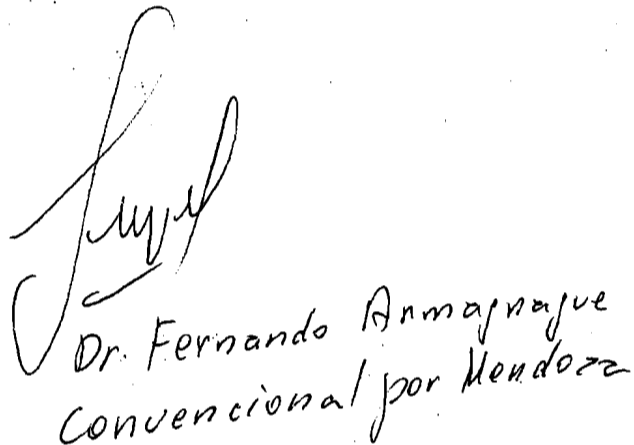 Dr. Fernando Armagnague
Convencional por Mendoza